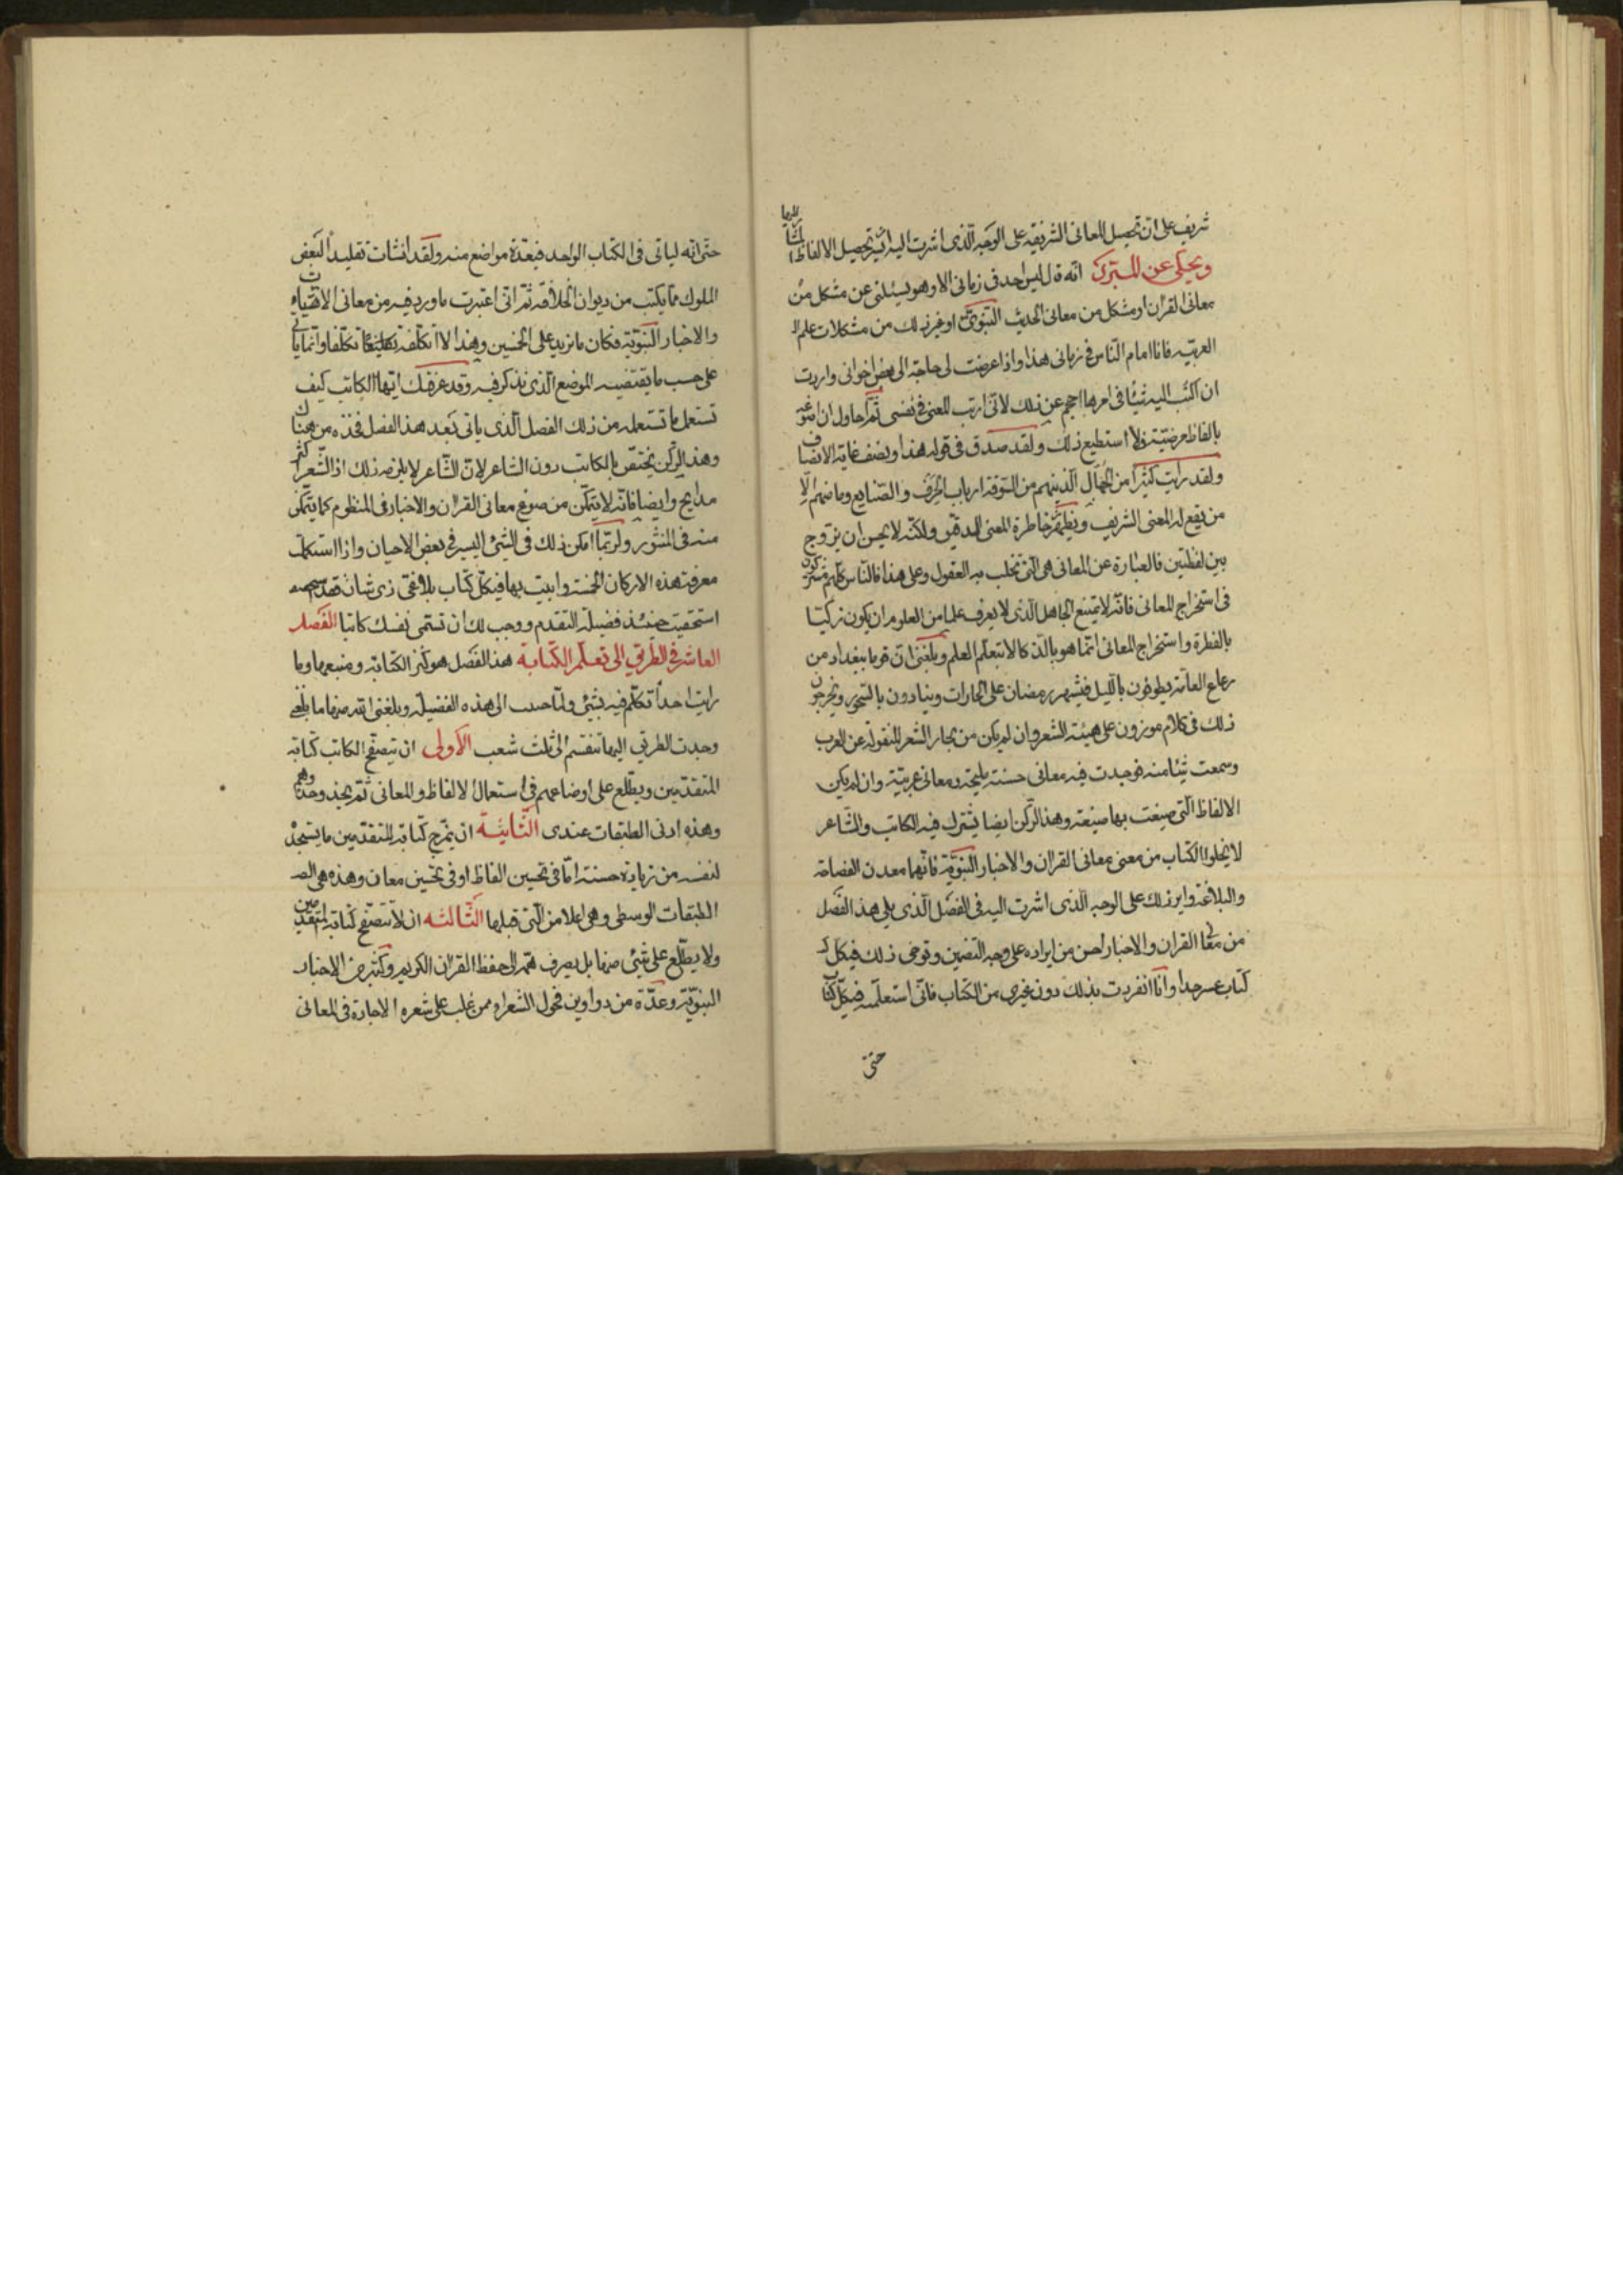 شريف على ان تحصيل المعانى الشريفة على الوجه الذى اشرت اليه ايسر تحصيل الالفاظ المشار اليها
ويحكى عن المبرد انه قال ليس احد فى زمانى الا وهو يسئلنى عن مشكل من
معانى القران او مشكل من معانى الحديث النبوى او غير ذلك من مشكلات علم ال
العربية فانا امام الناس فى زمانى هذا واذا عرضت لى حاجة الى بعض اخوانى واردت
ان اكتب اليه شيئا فى امرها احجم عن ذلك لانى ارتب المعنى فى نفسى ثم احاول ان اصوغه
بالفاظ مرضية فلا استطيع ذلك ولقد صدق فى قوله هذا وانصف غاية الانصاف
ولقد رايت كثيرا من الجهال الذينهم من السوقة ارباب الحرف والصنايع وما منهم الا
من يقع له المعنى الشريف ويظهر خاطرة المعنى الدقيق ولكنه لا يحسن ان يزوج
بين لفظتين فالعبارة عن المعانى هى التى تخلب به العقول وعلى هذا فالناس كلهم مشتركون
فى استخراج المعانى فانه لا يمنع الجاهل الذى لا يعرف علما من العلوم ان يكون زكيا
بالفطرة واستخراج المعانى انما هو بالذكا لا بتعلم العلم وبلغنى ان قوما ببغداد من
رعاع العامة يطوفون بالليل فى شهر رمضان على الحارات وينادون بالسحور ويخرجون
ذلك فى كلام موزون على هيئة الشعر وان لم يكن من بحار الشعر المنقولة عن العرب
وسمعت شيئا منه فوجدت فيه معانى حسنة مليحة ومعانى غريبة وان لم يكن
الالفاظ التى صيغت بها صيغة وهذا الركن ايضا يشترك فيه الكاتب والشاعر
لا يخلوا الكتاب من معنى معانى القران والاخبار النبوية فانهما معدن الفصاحة
والبلاغة وايراد ذلك على الوجه الذى اشرت اليه فى الفصل الذى يلى هذا الفصل
من معانى القران والاخبار احسن من ايراده على وجه التضمين وتوخى ذلك فى كل
كتاب عسر جدا وانا انفردت بذلك دون غيرى من الكتاب فانى استعلمته فى كل كتاب
حتى
حتى انه لياتى فى الكتاب الواحد فى عدة مواضع منه ولقد انشات تقليدا لبعض
الملوك مما يكتب من ديوان الخلافة ثم انى اعتبرت ما ورد فيه من معانى الايات
والاخبار النبوية فكان ما يزيد على الخمسين وهذا لا اتكلفه تكلفا وانما ياتى
على حسب ما يقتضيه الموضع الذى يذكر فيه وقد عرفتك ايها الكاتب كيف
تستعمل ما تستعمله من ذلك الفصل الذى ياتى بعد هذا الفصل فخذه من هناك
وهذا الركن يختص بالكاتب دون الشاعر لان الشاعر لا يلزمه ذلك اذ الشعر اكثره
مدايح وايضا فانه لا يتمكن من صوغ معانى القران والاخبار فى المنظوم كما يتمكن
منه فى المنثور ولربما امكن ذلك فى الشئ اليسير فى بعض الاحيان واذا استكملت
معرفة هذه الاركان الخمسة واتيت بها فى كل كتاب بلاغى ذى شان فقد
استحقيت حينئذ فضيلة التقدم ووجب لك ان تسمى نفسك كاتبا الفصل
العاشر فى الطريق الى تعلم الكتابة هذا الفصل هو كنز الكتابة ومنبعها وما
رايت احدا تكلم فيه بشئ ولما حببت الى هذه الفضيلة وبلغنى الله منها ما بلغنى
وجدت الطريق اليها تنقسم الى ثلث شعب الاولى ان يتصفح الكاتب كتابة
المتقدمين ويطلع على اوضاعهم فى استعمال الالفاظ والمعانى ثم يحذو حذوهم
وهذه ادنى الطبقات عندى الثانية ان يمزج كتابة المتقدمين ما يستجده
لنفسه من زيادة حسنة اما فى تحسين الفاظ او فى تحسين معان وهذه هى الط
الطبقات الوسطى وهى اعلا من التى قبلها الثالثه ان لا يتصفح كتابة المتقدمين
ولا يطلع على شئ منها بل يصرف همه الى حفظ القران الكريم وكثير من الاخبار
النبوية وعدة من دواوين فحول الشعراء ممن غلب على شعره الاجادة فى المعانى